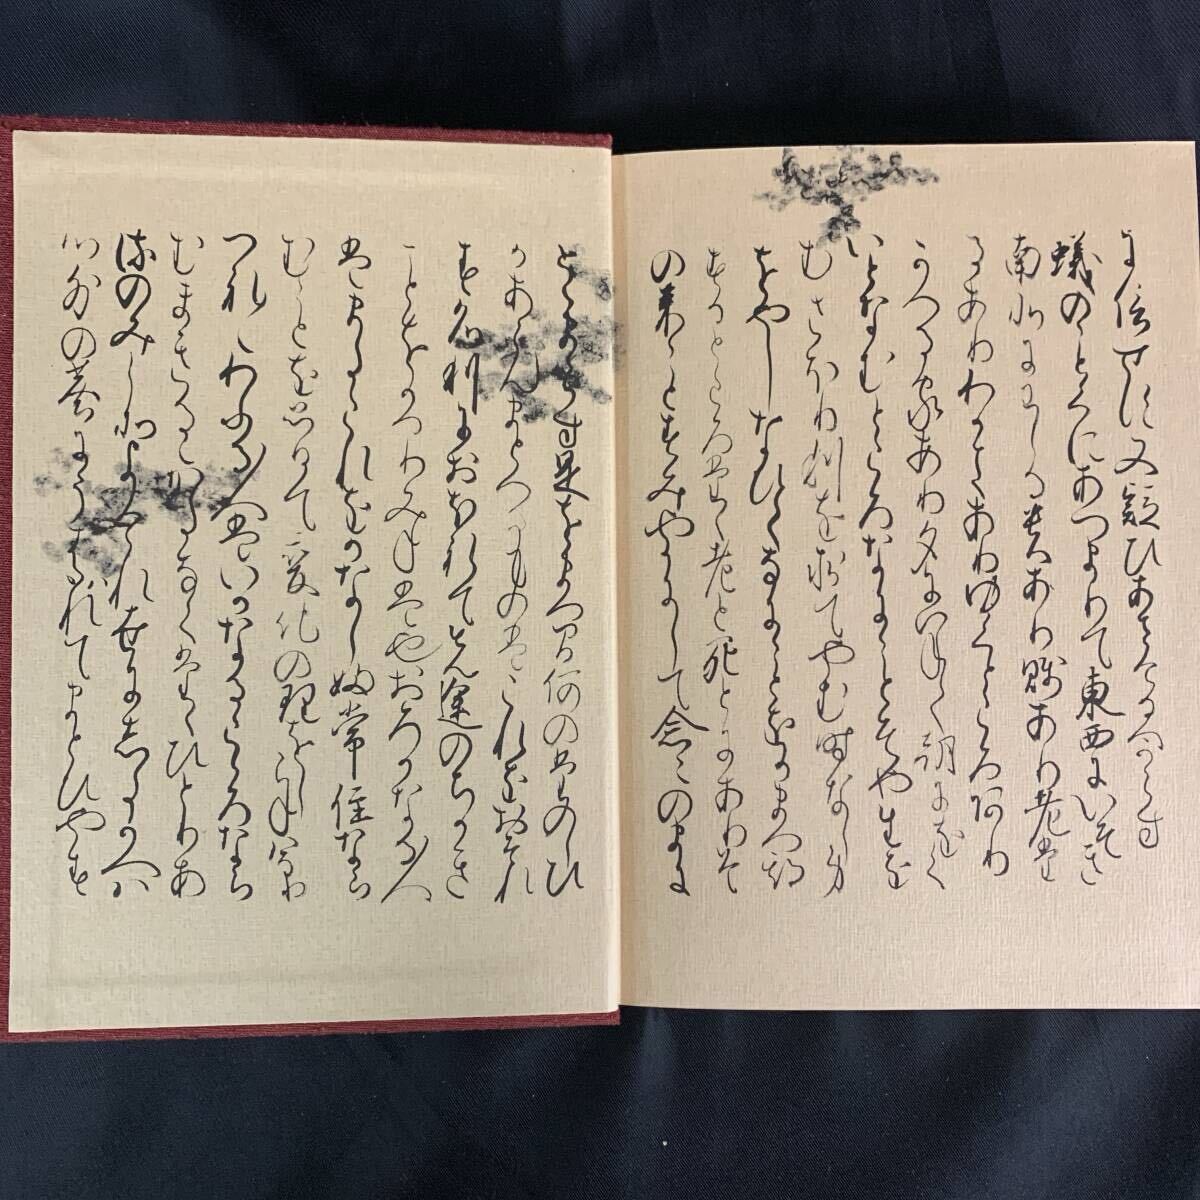 に信せす又疑ひあさけるへからす
蟻のことくにあつまりて東西にいそき
南北にわしる貴あり賤あり老た
るありわかきありゆくところあり
かへる家あり夕にいねて朝にをく
いとなむところなにことそや生を
むさほり利を求てやむ時なし身
をやしなひてなにことをかまつ期
するところたゝ老と死とにありそ
の来ことすみやかにして念々のまに
とゝまらす是をまつ間何のたのしひ
かあらんまとへるものはこれをおそれ
す名利におほれてせん途のちかき
ことをかへりみねは也おろかなる人
はまたこれをかなしふ常住なら
むことを思ひて変化の理をしらねはなり
つれ〱わふる人はいかなるこゝろなら
むまきるゝかたなくたゝひとりあ
るのみこそよけれ世にしたかへは
心外の塵にうはゝれてまとひやす